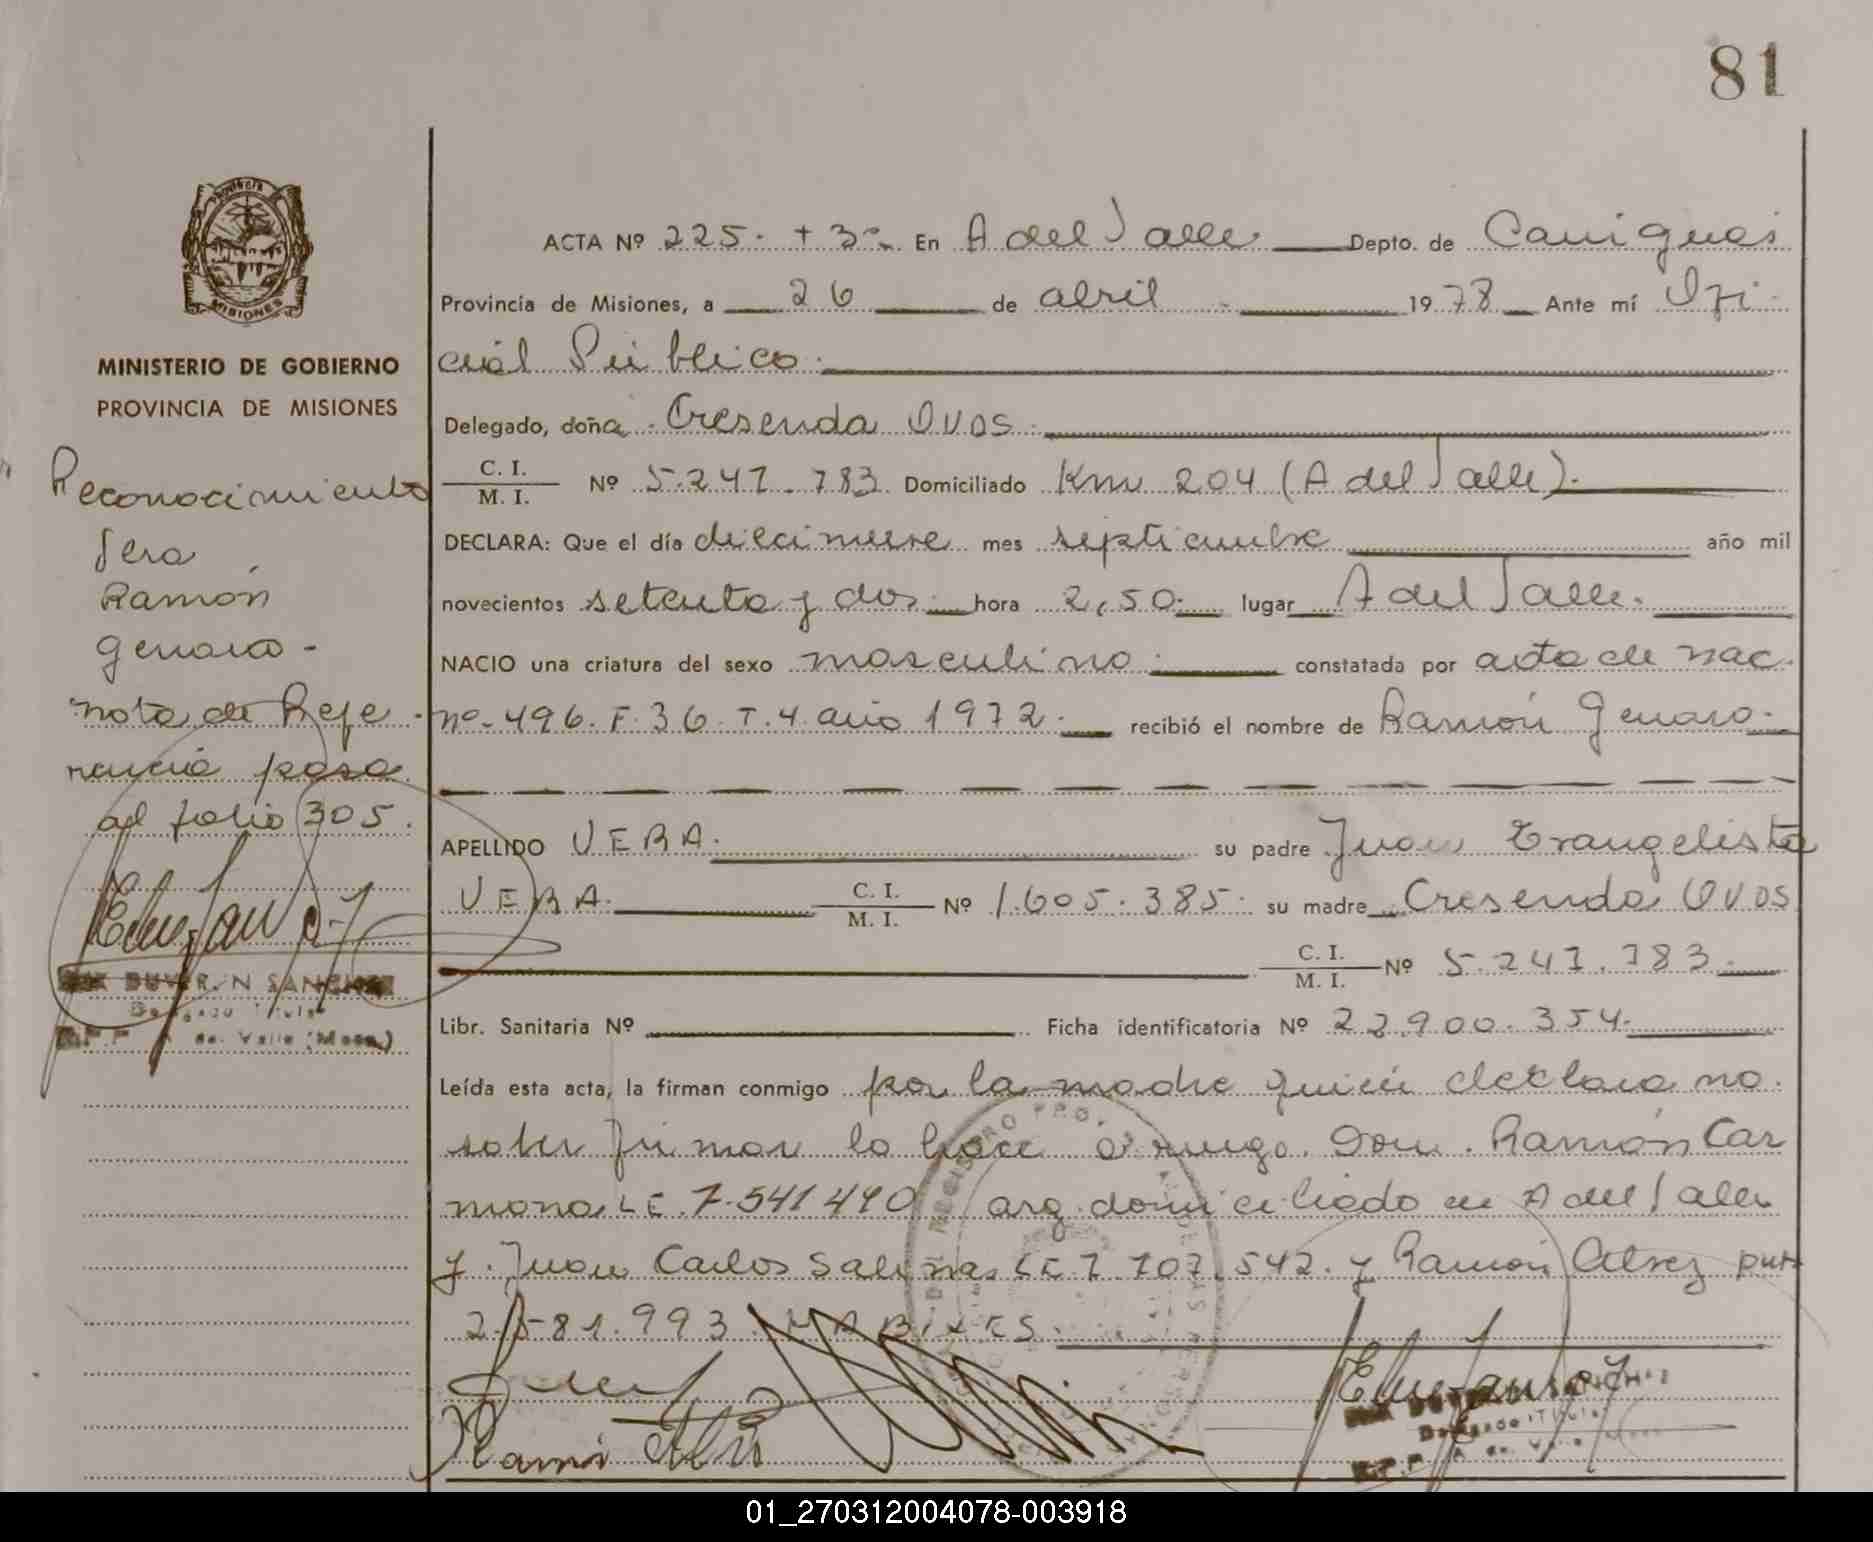 81
ACTA Nº 225. + 3ª En A del Valle. Depto. de Cainguas
Provincia de Misiones, a 26 de abril 1978 Ante mí Ofi
cial Público.
PROVINCIA
MISIONES
MINISTERIO DE GOBIERNO
PROVINCIA DE MISIONES
Delegado, doña Cresenda OVOS
C. I. / M. I. Nº 5.241.783 Domiciliado Km 204 (A del Valle).
DECLARA: Que el día diecinueve mes septiembre año mil
novecientos setenta y dos hora 2,50. lugar A del Valle.
NACIO una criatura del sexo masculino. constatada por acta de nac.
nº 496. F. 36. T. 4. año 1972. recibió el nombre de Ramón Genaro.
APELLIDO VERA. su padre Juan Evangelista
VERA. C. I. / M. I. Nº 1.605.385. su madre Cresenda OVOS
C. I. / M. I. Nº 5.241.783.
Libr. Sanitaria Nº Ficha identificatoria Nº 22.900.354.
Leída esta acta, la firman conmigo por la madre quien declara no
saber firmar lo hace a ruego. Don. Ramón Car
mona LE 7.541490 arg. domiciliado en A del Valle
y. Juan Carlos Salinas LE 7.107.542. y Ramón Alvez
2.581.993. HABILES.
Reconocimiento
Vera
Ramón
Genaro -
nota de Refe
rencia pasa
al folio 305.
DUVER N SANCHEZ
Delegado Titular
A. del Valle (Mnes.)
Ramón
DUVER SANCHEZ
Delegado Titular
01_270312004078-003918